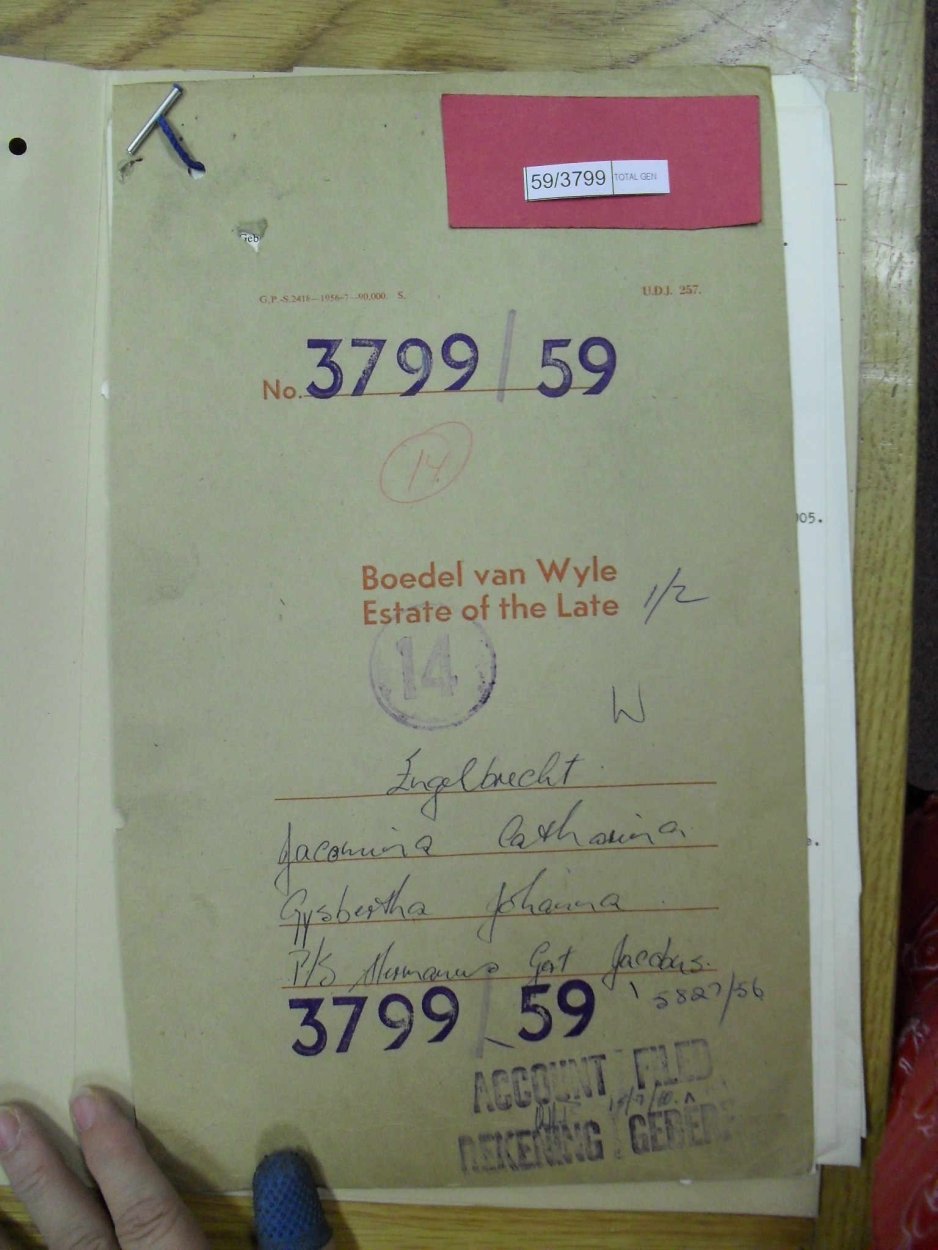 59/3799 TOTAL GEN
Geb
G.P.-S.2418—1956-7—90,000. S. U.D.J. 257.
No. 3799/59
14
Boedel van Wyle
Estate of the Late 1/2
14
W
Engelbrecht
Jacomina Catharina
Gysbertha Johanna
P/S Hermanus Gert Jacobus.
3799/59 5827/56
ACCOUNT FILED
REKENING
05.